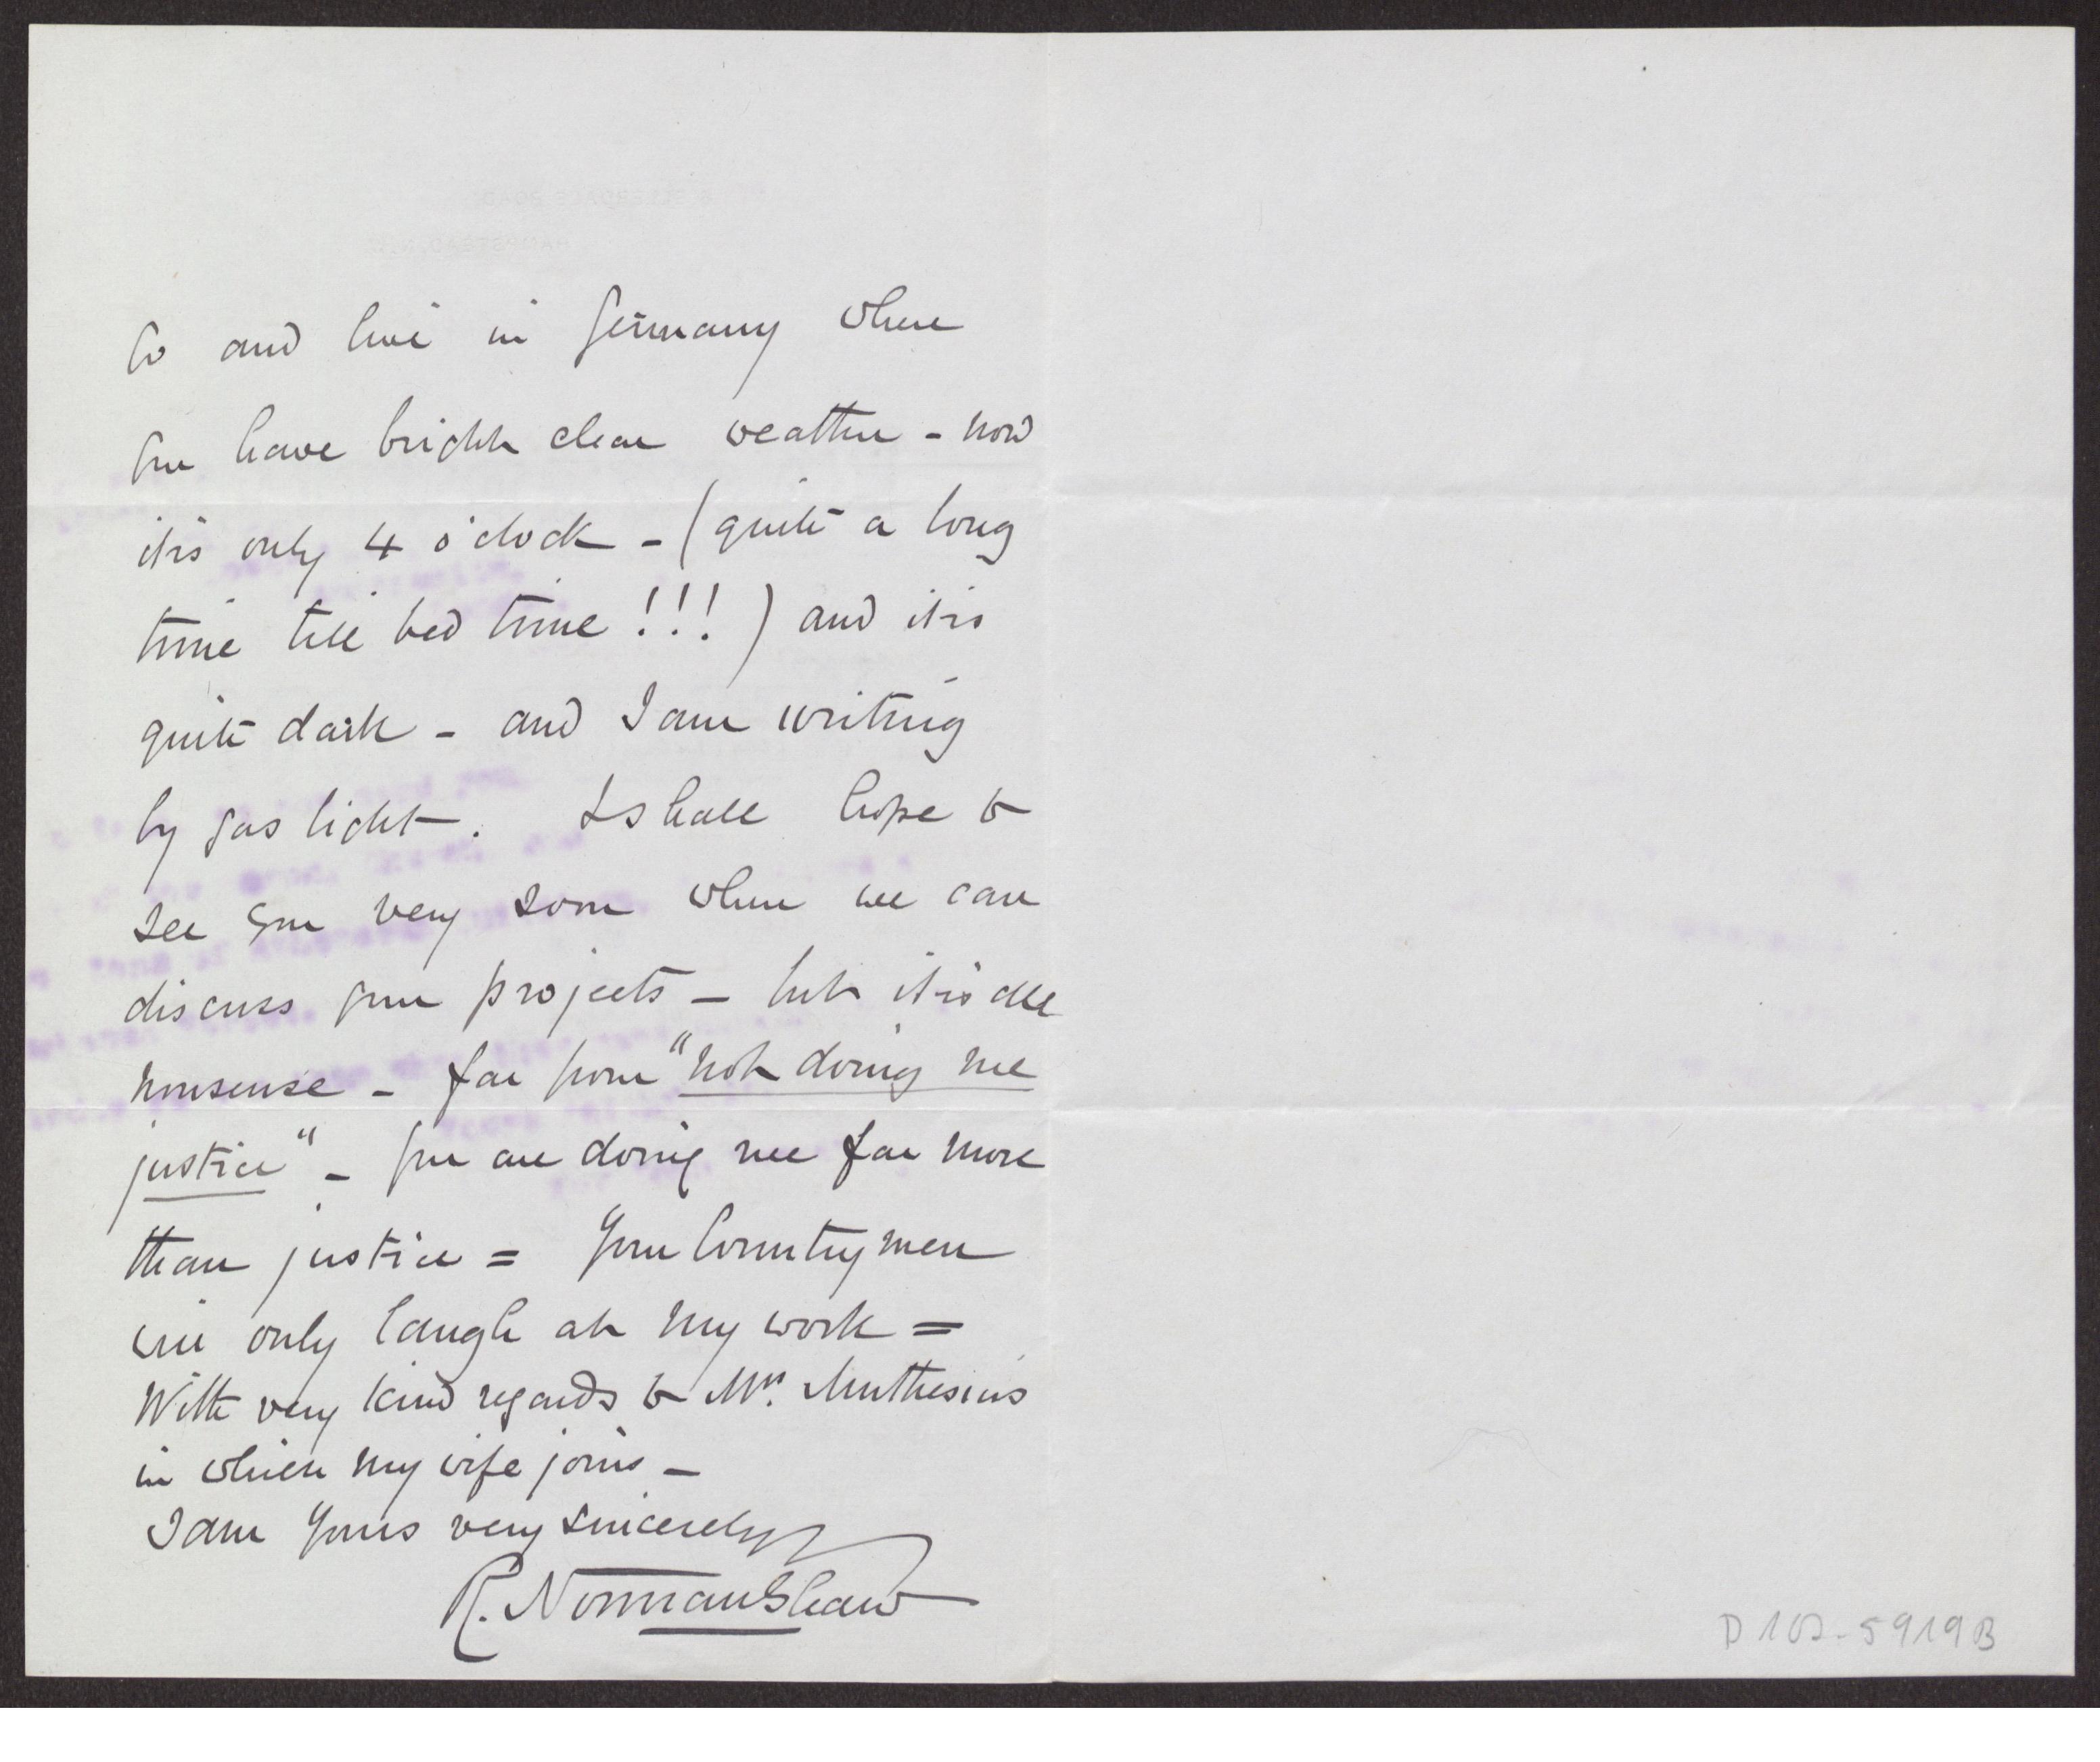 Go and live in Germany where
you have bright clear weather - now
it is only 4 o'clock - (quite a long
time till bed time !!! ) and it is
quite dark - and I am writing
by gas light. I shall hope to
see you very soon when we can
discuss your projects - but it is all
nonsense - far from "not doing me
justice" - you are doing me far more
than justice = Your Countrymen
will only laugh at my work =
With very kind regards to Mrs. Muthesius
in which my wife joins -
I am Yours very sincerely
R. Norman Shaw
D 102-5919B